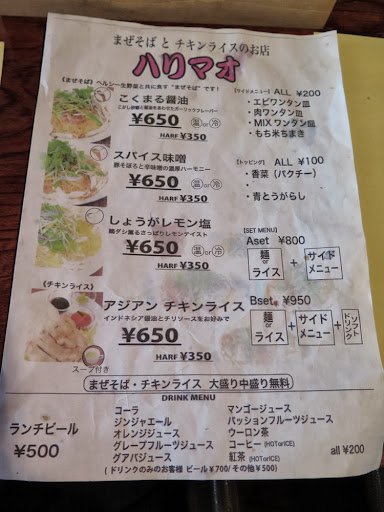 まぜそば と チキンライスのお店
ハリマオ
《まぜそば》ヘルシー生野菜と共に食す“まぜそば”です！
こくまる醤油
こがし胡椒と醤油をあわせたガーリックフレーバー
¥650 温or冷
HARF ¥350
スパイス味噌
豚そぼろと辛味噌の濃厚ハーモニー
¥650 温or冷
HARF ¥350
しょうがレモン塩
鶏ダシ薫るさっぱりレモンテイスト
¥650 温or冷
HARF ¥350
《チキンライス》
アジアン チキンライス
インドネシア醤油とチリソースをお好みで
¥650
HARF ¥350
スープ付き
【サイドメニュー】 ALL ¥200
・エビワンタン皿
・肉ワンタン皿
・MIX ワンタン皿
・もち米ちまき
【トッピング】 ALL ¥100
・香菜（パクチー）
・
・青とうがらし
【SET MENU】
Aset ¥800
麺 or ライス + サイドメニュー
Bset ¥950
麺 or ライス + サイドメニュー + ソフトドリンク
まぜそば・チキンライス 大盛り中盛り無料
DRINK MENU
ランチビール
¥500
コーラ
ジンジャエール
オレンジジュース
グレープフルーツジュース
グアバジュース
マンゴージュース
パッションフルーツジュース
ウーロン茶
コーヒー (HOTorICE)
紅茶 (HOTorICE)
all ¥200
( ドリンクのみのお客様 ビール¥700/ その他¥500 )